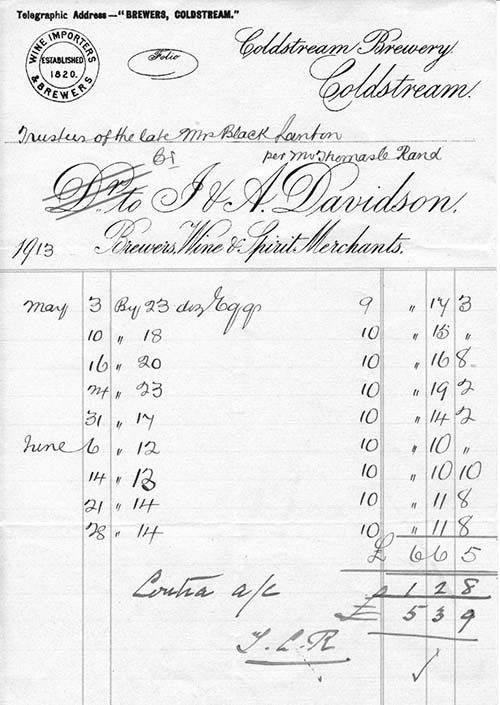 Telegraphic Address—"BREWERS, COLDSTREAM."
WINE IMPORTERS & BREWERS
ESTABLISHED
1820.
Folio
Coldstream Brewery
Coldstream.
Trustees of the late Mrs Black Lanton
Cr per Mr Thomas L Rand
Dr. to J & A. Davidson.
1913 Brewers, Wine & Spirit Merchants.
May 3 By 23 doz Eggs 9 " 17 3
10 " 18 10 " 15 "
16 " 20 10 " 16 8
24 " 23 10 " 19 2
31 " 17 10 " 14 2
June 6 " 12 10 " 10 "
14 " 13 10 " 10 10
21 " 14 10 " 11 8
28 " 14 10 " 11 8
£ 6 6 5
Contra a/c £ 1 2 8
£ 5 3 9
T.L.R